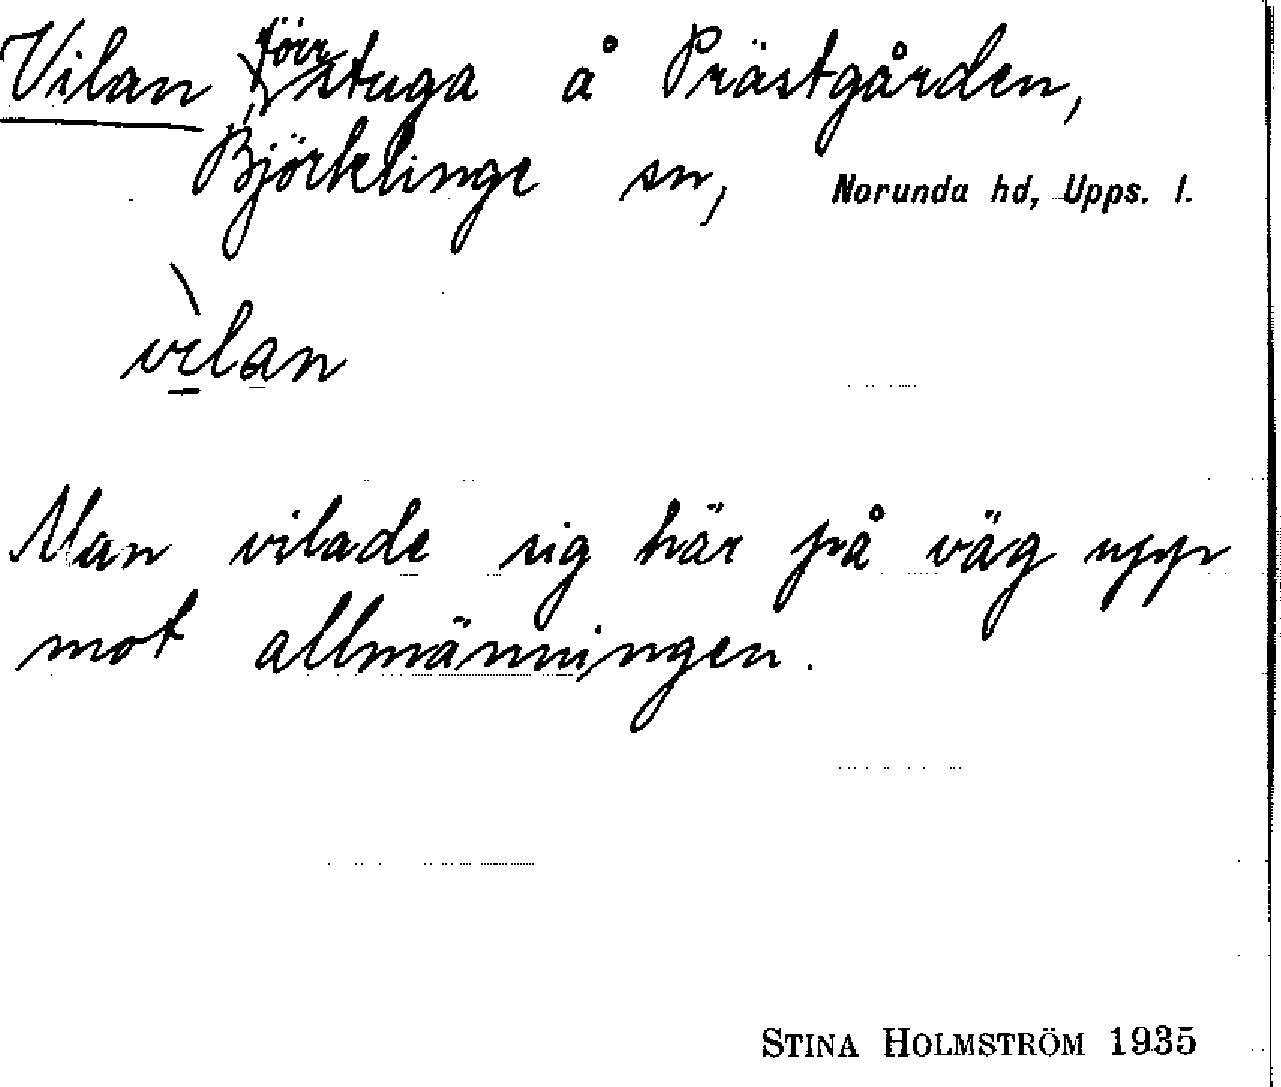 Vilan förr stuga å Prästgården,
Björklinge sn, Norunda hd, Upps. l.
vìlan
Man vilade sig här på väg upp
mot allmänningen.
STINA HOLMSTRÖM 1935